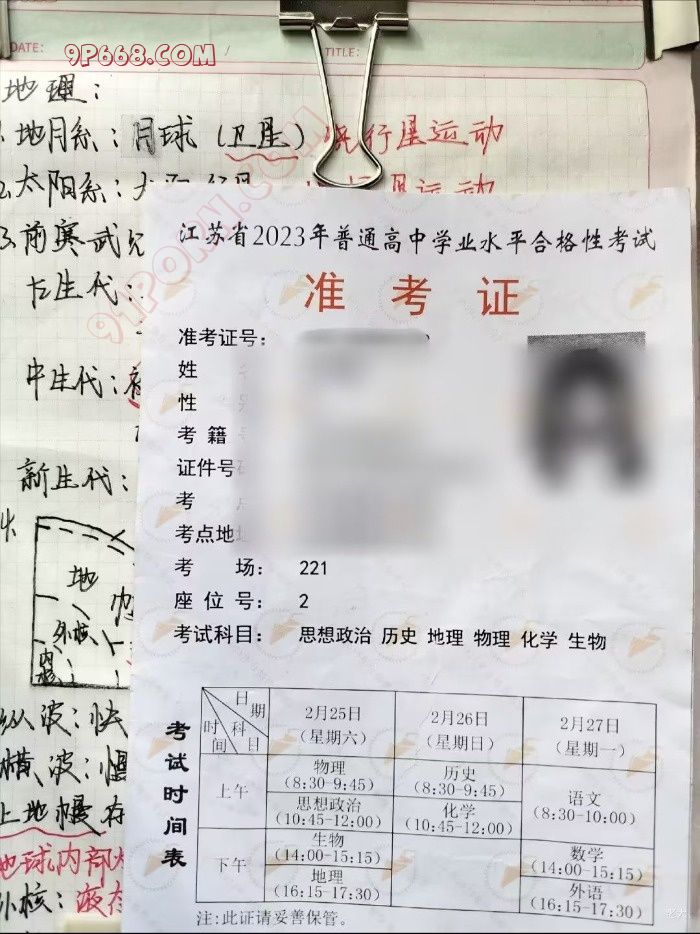 9P668.COM
DATE:
/
TITLE:
地理:
1.地月系:月球(卫星)绕行星运动
2.太阳系:
91PORN.COM
3.前寒武
古生代:
中生代:
新生代:
地
外核
内核
纵波:快
横波:慢
上地幔存
地球内部
外核:液
江苏省2023年普通高中学业水平合格性考试
准考证
准考证号:
姓
性
考籍
证件号
考
考点地
考 场: 221
座位号: 2
考试科目: 思想政治 历史 地理 物理 化学 生物
考试时间表
日期
科目
时间
2月25日
(星期六)
2月26日
(星期日)
2月27日
(星期一)
上午
物理
(8:30-9:45)
历史
(8:30-9:45)
语文
(8:30-10:00)
思想政治
(10:45-12:00)
化学
(10:45-12:00)
下午
生物
(14:00-15:15)
数学
(14:00-15:15)
地理
(16:15-17:30)
外语
(16:15-17:30)
注:此证请妥善保管。